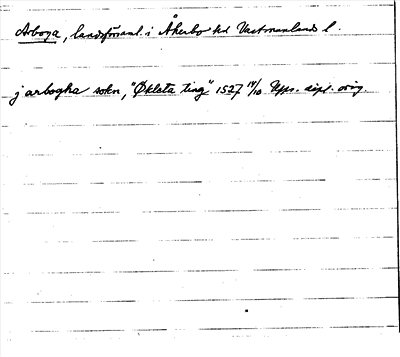 Arboga, landsförsaml. i Åkerbo hd Västmanlands l.
j arbogha sokn, "Økleta ting" 1527 11/10 Upps. dipl. orig.